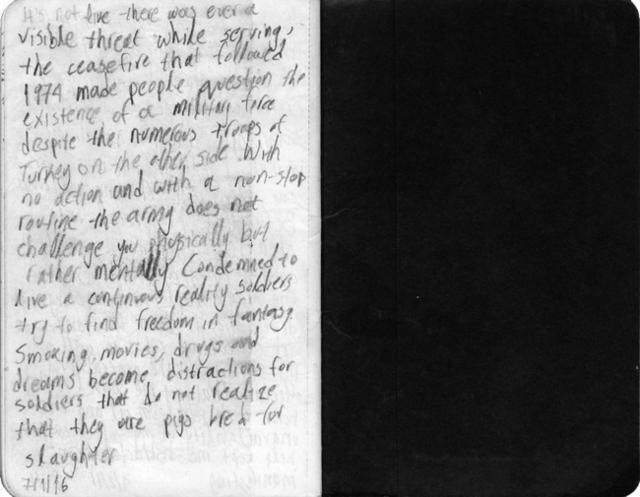 It's not like there was ever a
visible threat while serving,
the ceasefire that followed
1974 made people question the
existence of a military force
despite the numerous troops of
Turkey on the other side. With
no action and with a non-stop
routine the army does not
challenge you physically but
rather mentally. Condemned to
live a continuous reality soldiers
try to find freedom in fantasy.
Smoking, movies, drugs and
dreams become distractions for
soldiers that do not realize
that they are pigs bred for
slaughter
7/1/16